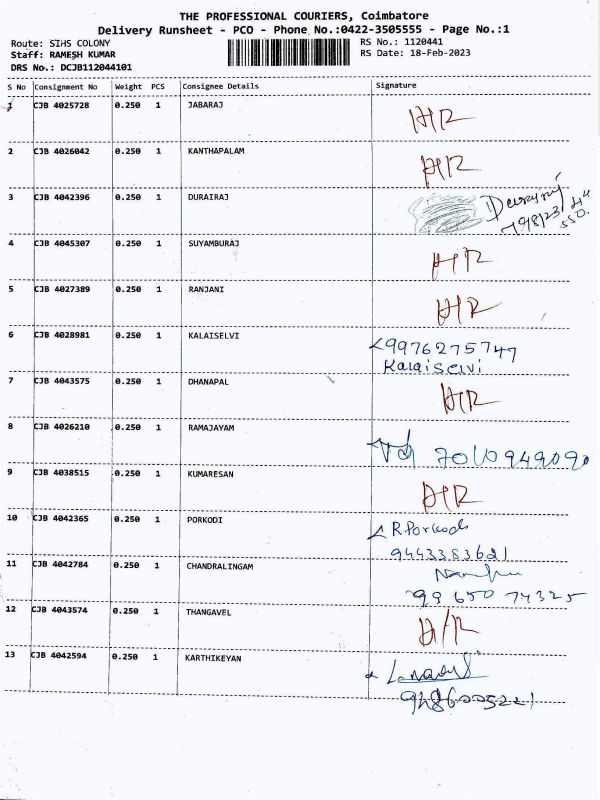 THE PROFESSIONAL COURIERS, Coimbatore
Delivery Runsheet - PCO - Phone No.:0422-3505555 - Page No.:1
Route: SIHS COLONY
Staff: RAMESH KUMAR
DRS No.: DCJB112044101
RS No.: 1120441
RS Date: 18-Feb-2023
S No Consignment No Weight PCS Consignee Details Signature
1 CJB 4025728 0.250 1 JABARAJ H/R
2 CJB 4026042 0.250 1 KANTHAPALAM H/R
3 CJB 4042396 0.250 1 DURAIRAJ
4 CJB 4045307 0.250 1 SUYAMBURAJ H/R
5 CJB 4027389 0.250 1 RANJANI H/R
6 CJB 4028981 0.250 1 KALAISELVI 9976275747
Kalaiselvi
7 CJB 4043575 0.250 1 DHANAPAL H/R
8 CJB 4026210 0.250 1 RAMAJAYAM 7010949090
9 CJB 4038515 0.250 1 KUMARESAN H/R
10 CJB 4042365 0.250 1 PORKODI R.Porkodi
9443383621
11 CJB 4042784 0.250 1 CHANDRALINGAM
99 650 74325
12 CJB 4043574 0.250 1 THANGAVEL H/R
13 CJB 4042594 0.250 1 KARTHIKEYAN